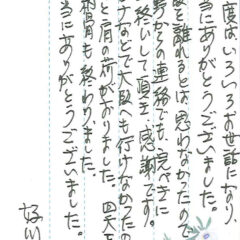 度はいろいろお世話になり、
当にありがとうございました。
を離れるとは思わなかったので
野からの連絡でも、完ぺきに
終いして頂き、感謝です。
なとで大阪へも行けなかったの
と肩の荷がおりました。四天王
納骨も終わりました。
当にありがとうございました。